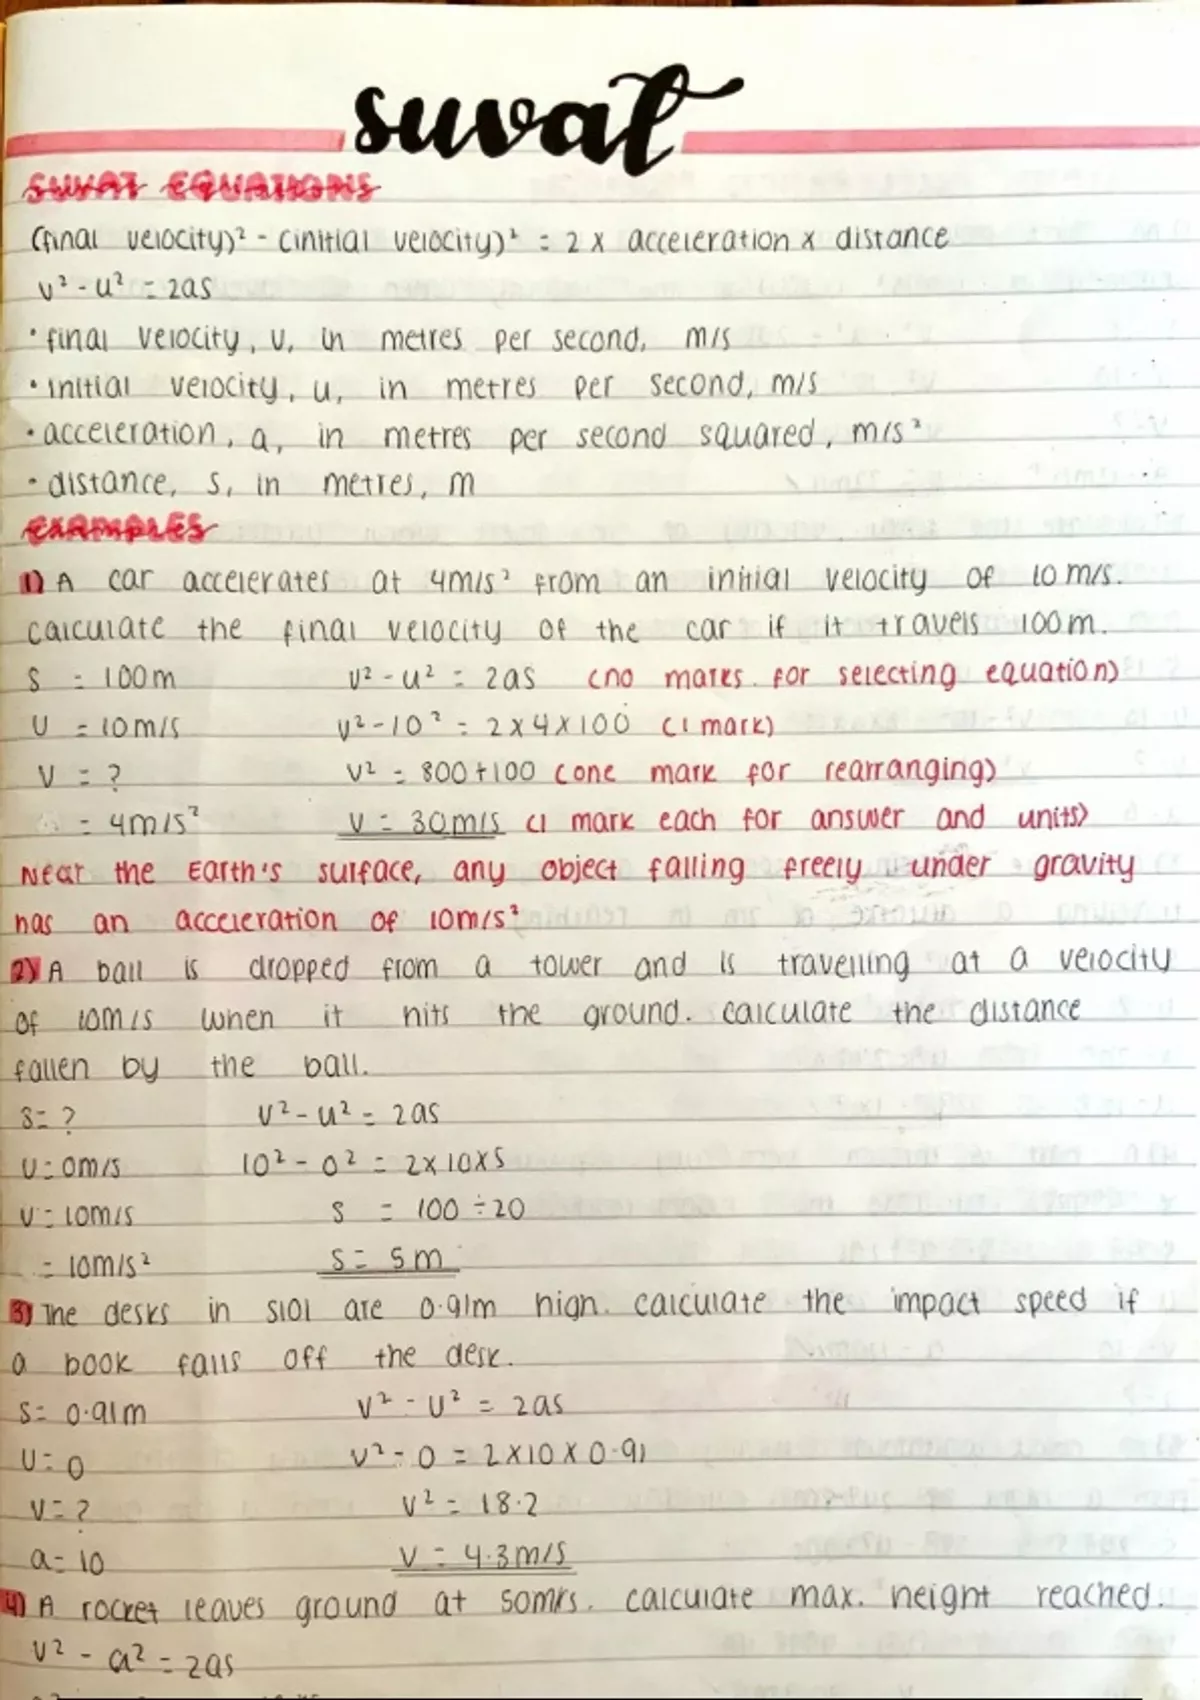 suvat
SUVAT EQUATIONS
(final velocity)² - (initial velocity)² = 2 x acceleration x distance
v² - u² = 2as
• final velocity, v, in metres per second, m/s
• initial velocity, u, in metres per second, m/s
• acceleration, a, in metres per second squared, m/s²
• distance, s, in metres, m
EXAMPLES
1) A car accelerates at 4m/s² from an initial velocity of 10 m/s.
calculate the final velocity of the car if it travels 100m.
s = 100m v² - u² = 2as (no marks for selecting equation)
u = 10m/s v² - 10² = 2 x 4 x 100 (1 mark)
v = ? v² = 800 + 100 (one mark for rearranging)
= 4m/s² v = 30m/s (1 mark each for answer and units)
Near the Earth's surface, any object falling freely under gravity
has an acceleration of 10m/s²
2) A ball is dropped from a tower and is travelling at a velocity
of 10m/s when it hits the ground. calculate the distance
fallen by the ball.
s = ? v² - u² = 2as
u = 0m/s 10² - 0² = 2 x 10 x s
v = 10m/s s = 100 ÷ 20
= 10m/s² s = 5m
3) The desks in S101 are 0.91m high. calculate the impact speed if
a book falls off the desk.
s = 0.91m v² - u² = 2as
u = 0 v² - 0 = 2 x 10 x 0.91
v = ? v² = 18.2
a = 10 v = 4.3m/s
4) A rocket leaves ground at 50m/s. calculate max. height reached.
v² - a² = 2as